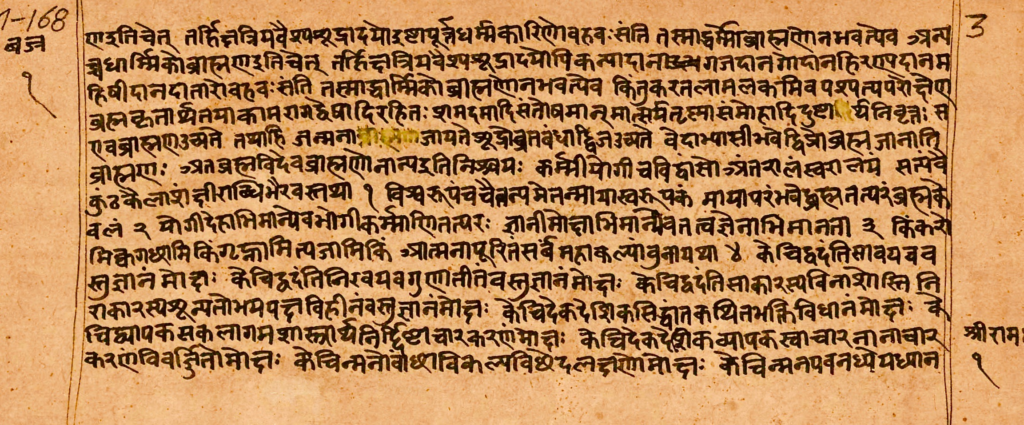 १-168
वज्र
१
3
ण इति चेत् तर्हि क्षत्रियवैश्यशूद्रादयोऽदृष्टापूर्त्तधर्मकारिणो बहवः संति तस्माद्धर्मो ब्राह्मणो न भवत्येव अन्य
च्च धार्मिको ब्राह्मण इति चेत् तर्हि क्षत्रियवैश्यशूद्रादयोपि कन्यादान गजदान गोदान हिरण्यदान म
हिषीदान दातारो बहवः संति तस्माद्धार्मिको ब्राह्मणो न भवत्येव किंतु करतलामलकमिव पश्यत्यपरोक्षेण
ब्रह्म कृतार्थतया कामरागद्वेषादिरहितः शमदमादिसंतोषमान् मात्सर्यतृष्णासंमोहादि निवृत्तः स
एव ब्राह्मण उच्यते तथाहि जन्मना जायते शूद्रो व्रतबंधाद्द्विज उच्यते वेदाभ्यासी भवेद्विप्रो ब्रह्म जानाति
ब्राह्मणः अत ब्रह्मविदेव ब्राह्मणो नान्य इति निश्चयः कर्मी योगी च विद्वांसो सत्यवै
कुंठकैलाश क्षीराब्धि भैरवस्तथा १ विश्वरूपं च मायापरं भवेद्ब्रह्म तत्परं ब्रह्म के
वलं २ योगी देहाभिमान्येव भोगी कर्माणि तत्परः ज्ञानी मोक्षाभिमान्येव तत्वज्ञे नाभिमानता ३ किं करो
मि क्व गछामि किं गृह्णामि त्यजामि किं आत्मना पूरितं सर्वं महाकल्पांबुना यथा ४ केचिद्वदंति सावयवव
स्तुज्ञानं मोक्षः केचिद्वदंति निरवयवगुणातीतवस्तुज्ञानं मोक्षः केचिद्वदंति साकारस्य विनाशोस्ति नि
राकारस्य शून्यतोभयपक्षविहीनं वस्तुज्ञानं मोक्षः केचिदेकदेशिकसिद्धांतकथितभक्तिविधानं मोक्षः के
चिद्व्यापकसकलागमशास्त्रार्थनिर्दिष्टाचारकरणं मोक्षः केचिदेकदेशिकव्यापकस्वाचारनानाचार
करणविवर्जितो मोक्षः केचिन्मनो मोक्षः केचिन्मनपवनध्येयध्यान
श्रीराम
१